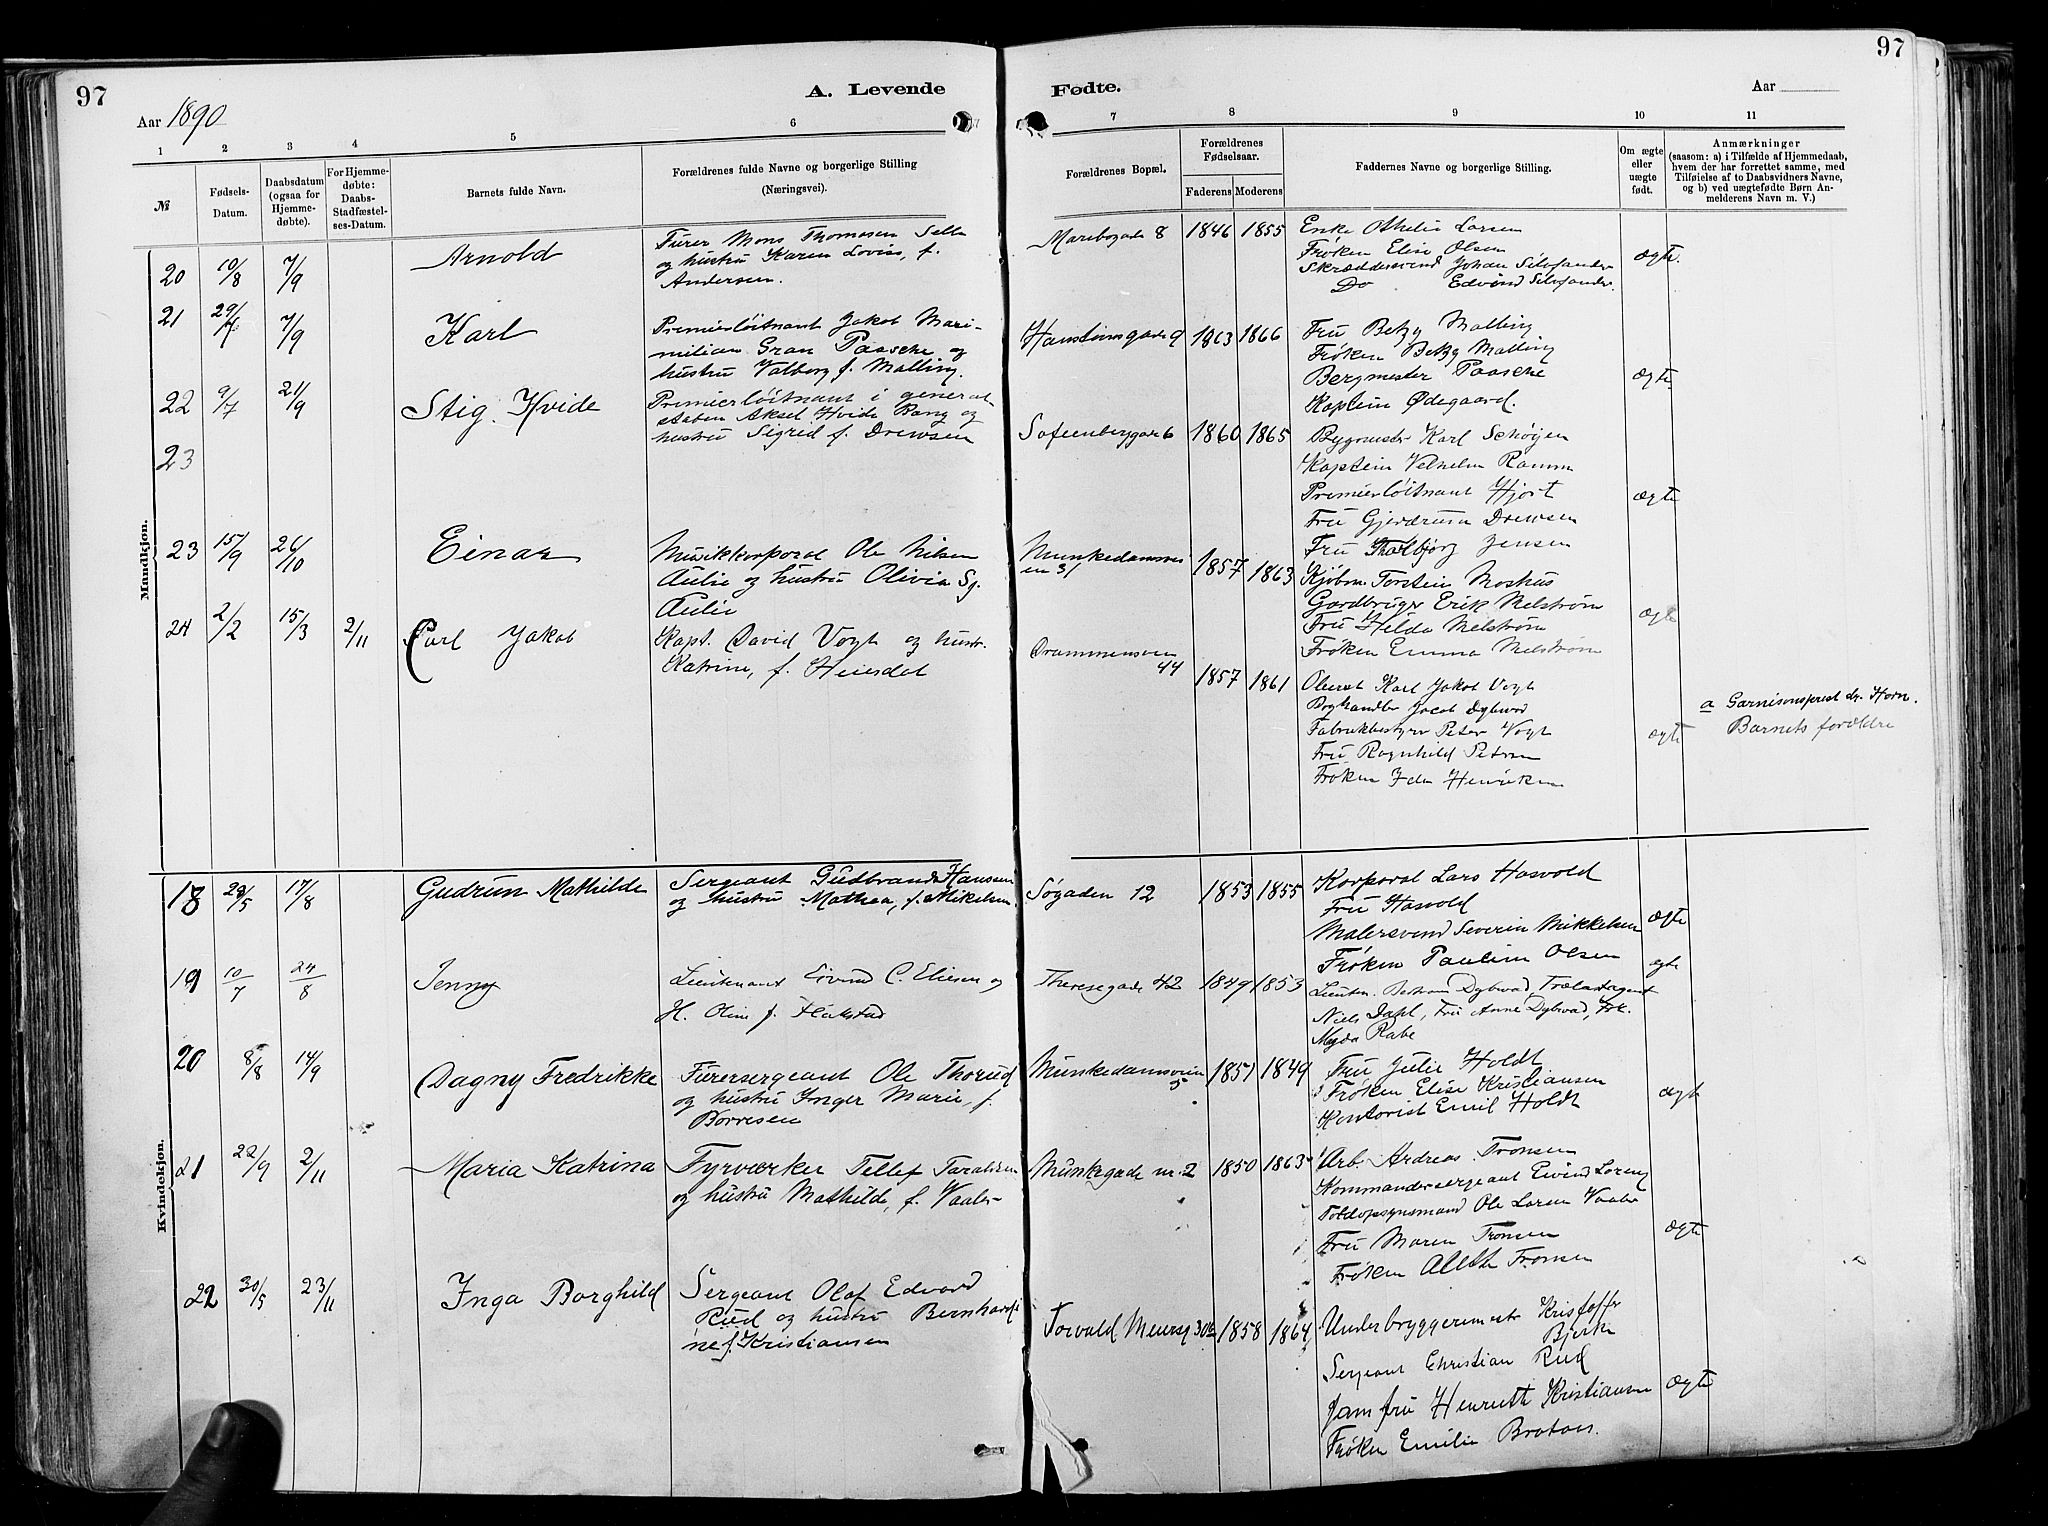 97
A. Levende
Aar 1890
1 2 3 4 5 6
№
Fødsels-
Datum.
Daabsdatum
(ogsaa for
Hjemme-
døbte).
For Hjemme-
døbte:
Daabs-
Stadfæstel-
ses-Datum.
Barnets fulde Navn.
Forældrenes fulde Navne og borgerlige Stilling
(Næringsvei).
Mandkjøn.
20 10/8 7/9 Arnold
Furer Mons Thomasen
og hustru Karen Lovise, f.
Andersen.
21 29/ 7/9 Karl
Premierløitnant Jakob Maxi-
milian Gran Paasche og
hustru Valborg f. Malling.
22 9/7 21/9 Stig Hvide
Premierløitnant i general-
staben Aksel Hvide Bang og
hustru Sigrid f. Drewsen
23
23 15/9 26/10 Einar
Musikkorporal Ole Nilsen
Aulie og hustru Olivia Sg.
Aulie
24 2/2 15/3 2/11 Carl Jakob
Kapt. David Vogt og hustr.
Katrine, f.
Kvindekjøn.
18 /5 17/8 Gudrun Mathilde
Sergeant Gudbrand Hanssen
og hustru Mathea, f. Mikelsen.
19 10/7 24/8 Jenny
Lieutenant Eivind C. Eliesen og
H. Oline f.
20 8/8 14/9 Dagny Fredrikke
Furersergeant Ole Thorud
og hustru Inger Marie, f.
Borresen
21 22/9 2/11 Maria Katrina
Fyrværker Tellef Taraldsen
og hustru Mathilde, f. Vaaler
22 30/5 23/11 Inga Borghild
Sergeant Olaf Edvard
Rud og hustru Bernhardi
ne f. Kristiansen
97
Fødte.
Aar
7 8 9 10 11
Forældrenes Bopæl.
Forældrenes
Fødselsaar.
Faderens Moderens
Faddernes Navne og borgerlige Stilling.
Om ægte
eller
uægte
født.
Anmærkninger
(saasom: a) i Tilfælde af Hjemmedaab,
hvem der har forrettet samme, med
Tilføielse af to Daabsvidners Navne,
og b) ved uægtefødte Børn An-
melderens Navn m. V.)
Maribogade 8 1846 1855 Enke Othelie Larsen
Frøken Elise Olsen
Skræddersvend Johan
Do Edvind
ægte.
9 1863 1866 Fru Betzy Malling
Frøken Betzy Malling
Bergmester Paasche
Kaptein Ødegaard.
ægte
Sofienberggade 6 1860 1865 Bygmester Karl Schøyen
Kaptein Vilhelm Ramm
Premierløitnant Hjort
Fru Gjerdrum Drewsen
ægte
Munkedamsvei
en 31 1857 1863
Fru Jensen
Kjøbm. Torstein Moshus
Gardbruger Erik Melstrøm
Fru Hilda Melstrøm
Frøken Emma Melstrøm
ægte
Drammensveien
44 1857 1861 Oberst Karl Jakob Vogt
Boghandler Jacob Dybwad
Fabrikbestyrer Peter Vogt
Fru Ragnhild Petersen
Frøken Ida Henriksen
ægte
a Garnisonsprest dr. Horn.
Barnets forældre
Søgaden 12 1853 1855 Korporal Lars Hasvold
Fru Hasvold
Malersvend Severin Mikkelsen
Frøken Pauline Olsen
ægte
Theresegade 42 1849 1853
Lieuten. Bertram Dybwad, Trælastagent
Niels Dahl, Fru Anne Dybwad, Frk.
Magda Rabe
ægte
Munkedamsveien
5 1857 1849 Fru Julie Holdt
Frøken Elise Kristiansen
Kontorist Emil Holdt
ægte
Munkegade nr. 2 1850 1863 Arb. Andreas Tronsen
Kommandersergeant Eivind Lorens
Toldopsynsmand Ole Larsen Vaaler
Fru Maren Tronsen
Frøken Aleth Tronsen
ægte
Torvald Meiersg 30b 1858 1864 Underbryggermester Kristoffer
Bjerke
Sergeant Christian Rud
Jomfru Henriette Kristiansen
Frøken Emilie Braten.
ægte